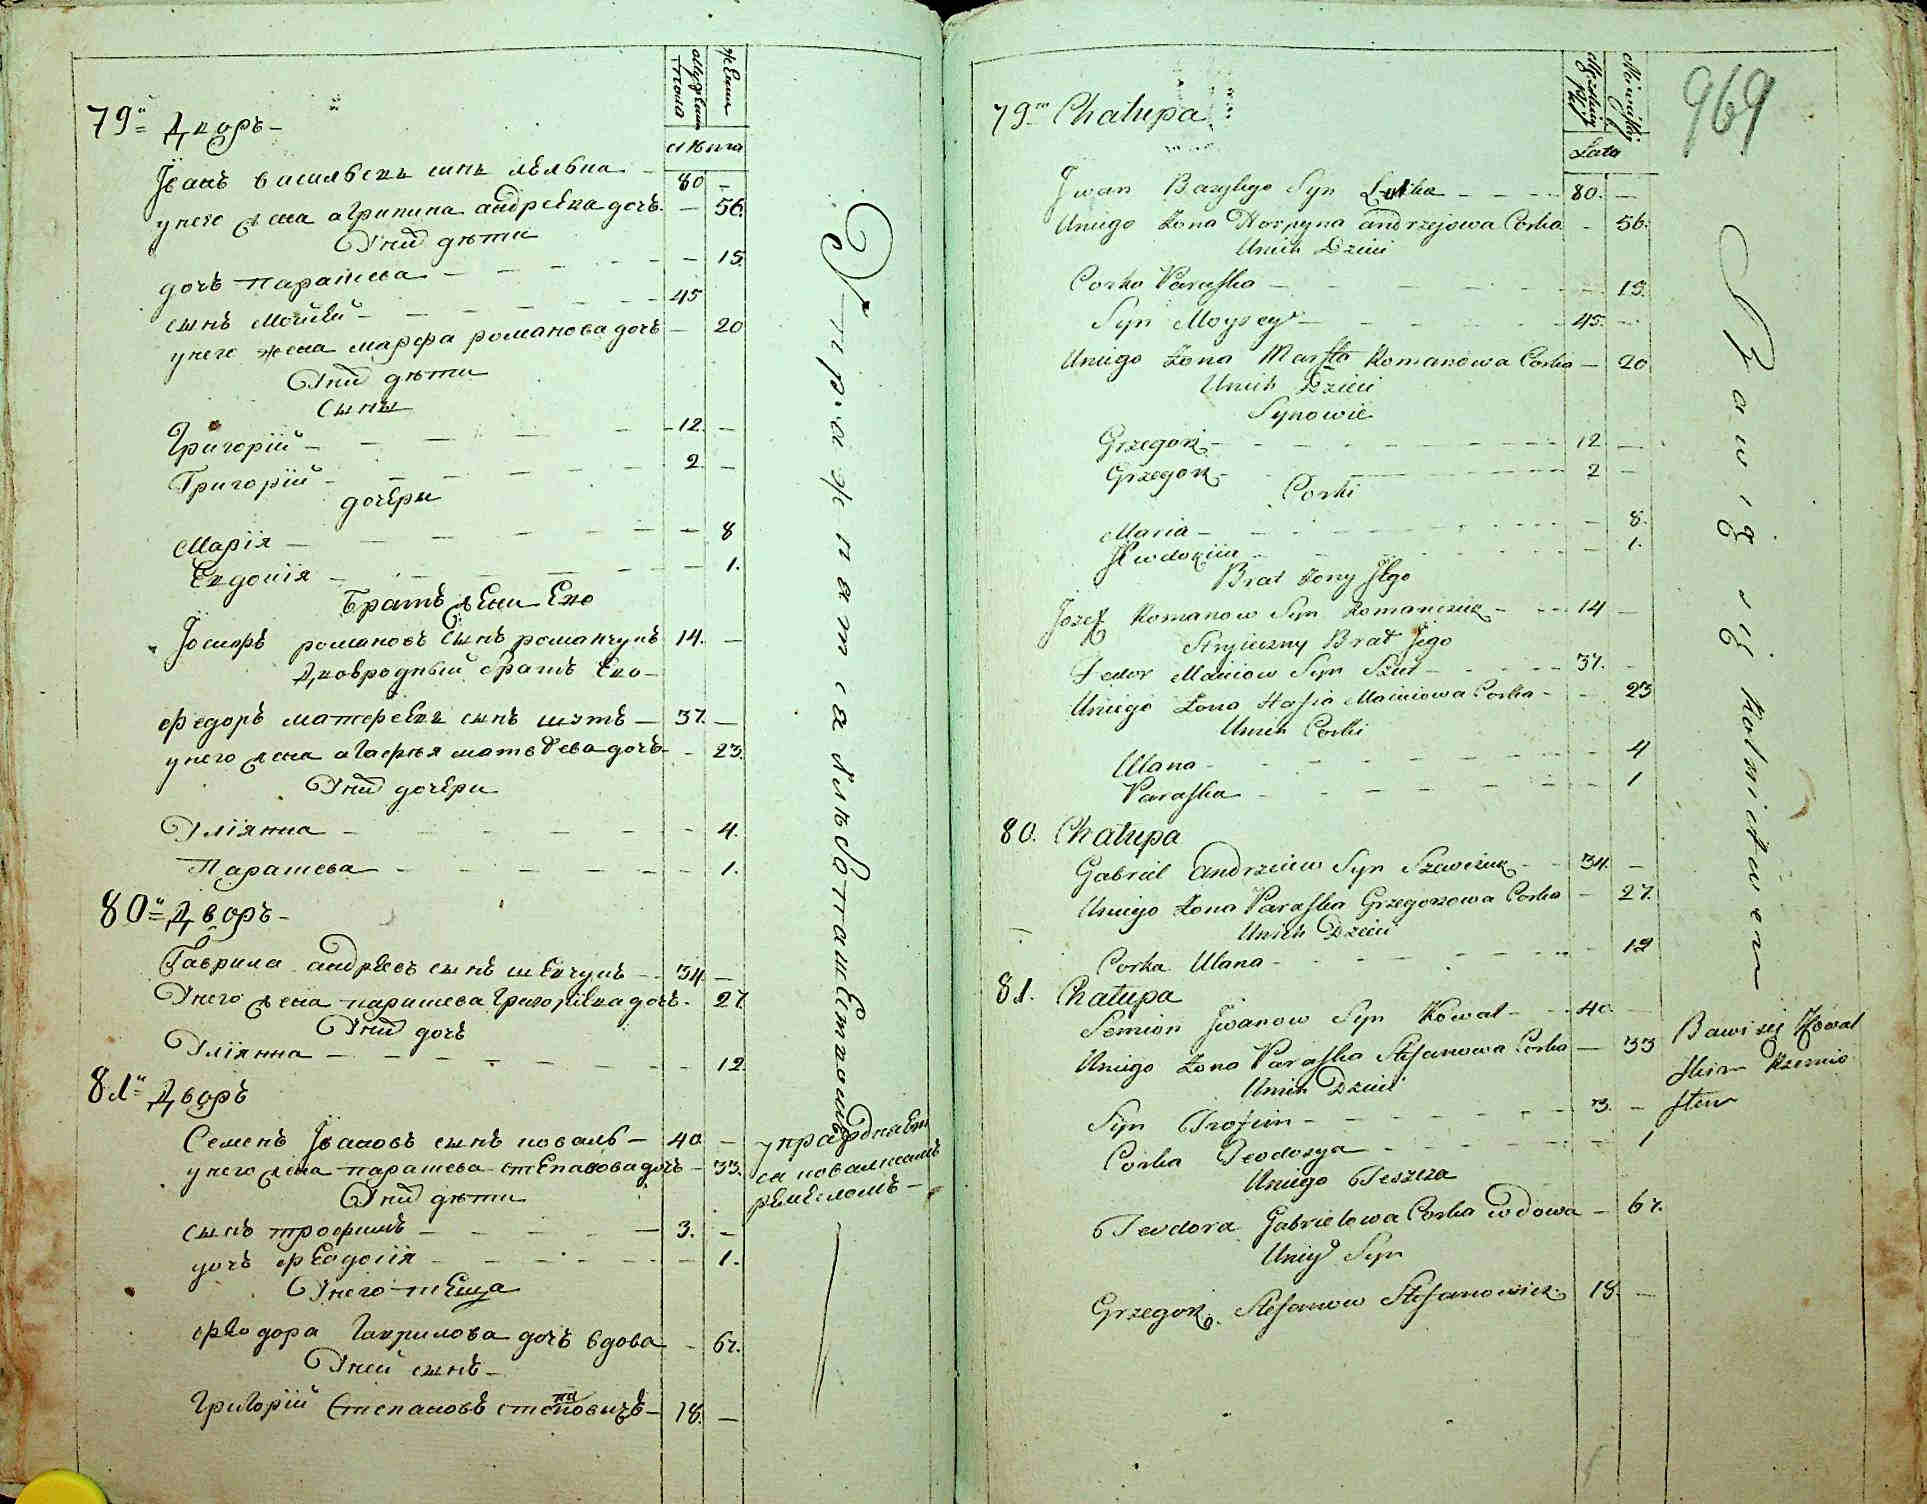 мужеска пола
женска
лѣта
79й Дворъ
Іванъ васильевъ сынъ 80
у него жена агрипина андреева дочь 56
У нихъ дѣти
дочь парашева 15
сынъ Мойсей 45
у него жена марфа романова дочь 20
У нихъ дѣти
Сыны
Григорій 12
Григорій 2
дочери
Марія 8
Евдокія 1.
братъ жени Ево
Іосифъ романовъ сынъ романчукъ 14.
Двоюродный братъ Ево
Федоръ матфеевъ сынъ шутъ 37.
у него жена агафья матвѣева дочь 23.
У нихъ дочери
Уліянна 4.
Парашева 1.
80й Дворъ
Гаврила андреевъ сынъ шевчукъ 34
У него жена парашева григорієва дочь 27
У нихъ дочь
Уліянна 12
81й Дворъ
Семенъ Івановъ сынъ коваль 40
у него жена парашева степанова дочь 33.
У нихъ дѣти
сынъ трофимъ 3.
дочь феодосія 1.
У него теща
феодора гаврилова дочь вдова 67.
У ней сынъ
Григорій Степановъ степановичъ 18.
Упражняются хлебопашетвомъ
упражняет
ся ковалскимъ
ремесломъ
969
Męzkiej płci
Niewieściej
Lata
79ta Chałupa
Jwan Bazylego Syn 80.
Uniego Żona Horpyna andrzejowa Corka 56.
Unich Dzieci
Corka Paraska 15.
Syn Moysey 45.
Uniego Żona Marfta Romanowa Corka 20
Unich Dzieci
Synowie
Grzegorz 12
Grzegorz 2
Corki
Maria 8.
Jewdokiia 1.
Brat żony Jego
Jozef Romanow Syn Romanczuk 14
Stryieczny Brat Jego
Fedor Maciow Syn Szut 37.
Uniego Żona Hafia Maciowa Corka 23
Unich Corki
Ulana 4
Paraska 1
80. Chałupa
Gabriel Andrzeiew Syn Szewczuk 34
Uniego Żona Paraska Grzegorzowa Corka 27.
Unich Dzieci
Corka Ulana 12
81. Chałupa
Semion Jwanow Syn Kowal 40.
Uniego Żona Paraska Stefanowa Corka 33
Unich Dzieci
Syn Trofim 3.
Corka Teodozya 1
Uniego Teszcza
Teodora Gabrielowa Corka wdowa 67.
Uniey Syn
Grzegorz Stefanow Stefanowicz 18.
Bawią się Rolnictwem
Bawi się Kowal
skim Rzemio
słem